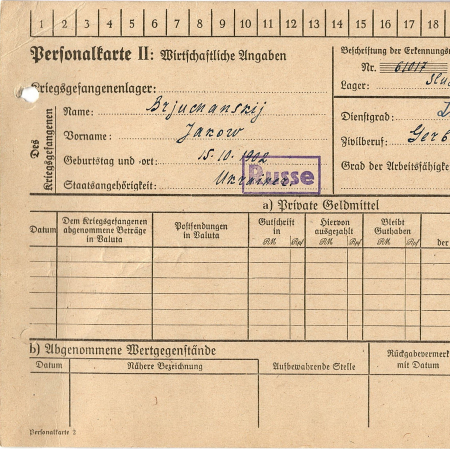 1 2 3 4 5 6 7 8 9 10 11 12 13 14 15 16 17 18
Personalkarte II: Wirtschaftliche Angaben
Kriegsgefangenenlager:
Beschriftung der Erkennungs
Nr. 61017
Lager:
Des Kriegsgefangenen
Name: Brjuchanskij
Vorname: Jakow
Geburtstag und -ort: 15.10.1902
Staatsangehörigkeit: Ukrainer
Russe
Dienstgrad:
Zivilberuf: Gerb
Grad der Arbeitsfähigke
a) Private Geldmittel
Datum
Dem Kriegsgefangenen abgenommene Beträge in Valuta
Postsendungen in Valuta
Gutschrift in
RM. Rpf
Hiervon ausgezahlt
RM. Rpf
Bleibt Guthaben
RM. Rpf
der
b) Abgenommene Wertgegenstände
Datum
Nähere Bezeichnung
Aufbewahrende Stelle
Rückgabevermerk mit Datum
Personalkarte 2